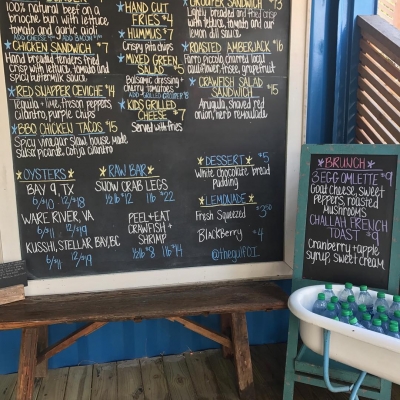 100% natural beef on a
brioche bun with lettuce,
tomato and garlic aioli
ADD CHEESE $1 ADD BACON
★ CHICKEN SANDWICH $7
Hand breaded tenders fried
crisp with lettuce, tomato and
spicy buttermilk sauce
★ RED SNAPPER CEVICHE $14
Tequila + lime, fresno peppers
cilantro, purple chips
★ BBQ CHICKEN TACOS $15
Spicy vinegar slow house made
salsa, picarde, cotija cilantro
★ HAND CUT
FRIES $4
★ HUMMUS $7
Crispy pita chips
★ MIXED GREEN
SALAD
Balsamic dressing +
cherry tomatoes
ADD GRILLED GROUPER $8
★ KIDS GRILLED
CHEESE $7
Served with fries
GROUPER SANDWICH $13
Lightly breaded and fried crisp
with lettuce, tomato and our
lemon dill sauce
★ ROASTED AMBERJACK $16
Farro piccolo, charred local
cauliflower, frisee, grapefruit
★ CRAWFISH SALAD
SANDWICH $15
Arugula, shaved red
onion, herb remoulade
★OYSTERS★
BAY 9, TX
6/$10 12/$18
WARE RIVER, VA
6/$11 12/$19
KUSSHI, STELLAR BAY, BC
6/$11 12/$19
★RAW BAR★
SNOW CRAB LEGS
½lb $12 1lb $22
PEEL + EAT
CRAWFISH +
SHRIMP
½lb $8 1lb $14
★DESSERT★ $5
White chocolate bread
pudding
★LEMONADE★
Fresh Squeezed $3.50
BlackBerry $4
@thegulfOI
★BRUNCH★
3 EGG OMLETTE $9
Goat cheese, sweet
peppers, roasted
mushrooms
CHALLAH FRENCH
TOAST $9
Cranberry + apple
syrup, sweet cream